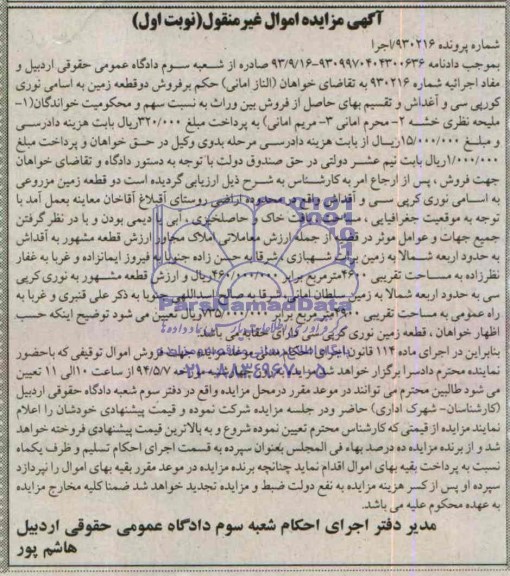 آگهی مزایده اموال غیرمنقول(نوبت اول)
شماره پرونده ۹۳۰۲۱۶/اجرا
بموجب دادنامه ۹۳۰۹۹۷۰۴۰۴۳۰۰۶۳۶-۹۳/۹/۱۶ صادره از شعبه سوم دادگاه عمومی حقوقی اردبیل و
مفاد اجرائیه شماره ۹۳۰۲۱۶ به تقاضای خواهان (الناز امانی) حکم برفروش دوقطعه زمین به اسامی نوری
کورپی سی و آغداش و تقسیم بهای حاصل از فروش بین وراث به نسبت سهم و محکومیت خواندگان(۱-
ملیحه نظری خشه ۲- محرم امانی ۳- مریم امانی) به پرداخت مبلغ ۳۲۰/۰۰۰ریال بابت هزینه دادرسی
و مبلغ ۱۵/۰۰۰/۰۰۰ریال از بابت هزینه دادرسی مرحله بدوی وکیل در حق خواهان و پرداخت مبلغ
۱/۰۰۰/۰۰۰ریال بابت نیم عشر دولتی در حق صندوق دولت با توجه به دستور دادگاه و تقاضای خواهان
جهت فروش ، پس از ارجاع امر به کارشناس به شرح ذیل ارزیابی گردیده است دو قطعه زمین مزروعی
به اسامی نوری کرپی سی و آقداش واقع در محدوده اراضی روستای آقبلاغ آقاخان معاینه بعمل آمد با
توجه به موقعیت جغرافیایی ، بافت خاک و حاصلخیزی ، آبی یا دیمی بودن و با در نظر گرفتن
جمیع جهات و عوامل موثر در قضیه از جمله ارزش معاملاتی املاک مجاور ارزش قطعه مشهور به آقداش
به حدود اربعه شمالا به زمین برات شهبازی ، شرقا به حسن زاده جنوبا به فیروز ایمانزاده و غربا به غفار
نظرزاده به مساحت تقریبی ۴۶۰۰مترمربع برابر ۴۶۰/۰۰۰/۰۰۰ریال و ارزش قطعه مشهور به نوری کرپی
سی به حدود اربعه شمالا به زمین سلطان امانی شرقا به صفر اسداللهی جنوبا به ذکر علی قنبری و غربا به
راه عمومی به مساحت تقریبی ۲۹۰۰متر مربع برابر ریال تعیین می شود توضیح اینکه حسب
اظهار خواهان ، قطعه زمین نوری کرپی سی دارای حقابه می باشد.
بنابراین در اجرای ماده ۱۱۴ قانون اجرای احکام مدنی موعد مزایده جهت فروش اموال توقیفی که باحضور
نماینده محترم دادسرا برگزار خواهد شد مورخه ۹۴/۵/۷ از ساعت ۱۰الی ۱۱ تعیین
می شود طالبین محترم می توانند در موعد مقرر درمحل مزایده واقع در دفتر سوم شعبه دادگاه حقوقی اردبیل
(کارشناسان- شهرک اداری) حاضر ودر جلسه مزایده شرکت نموده و قیمت پیشنهادی خودشان را اعلام
نمایند مزایده از قیمتی که کارشناس محترم تعیین نموده شروع و به بالاترین قیمت پیشنهادی فروخته خواهد
شد و از برنده مزایده ده درصد بهاء فی المجلس بعنوان سپرده به قسمت اجرای احکام تسلیم و ظرف یکماه
نسبت به پرداخت بقیه بهای اموال اقدام نماید چنانچه برنده مزایده در موعد مقرر بقیه بهای اموال را نپردازد
سپرده او پس از کسر هزینه مزایده به نفع دولت ضبط و مزایده تجدید خواهد شد ضمنا کلیه مخارج مزایده
به عهده محکوم علیه می باشد.
مدیر دفتر اجرای احکام شعبه سوم دادگاه عمومی حقوقی اردبیل
هاشم پور
ParsNamadData
۰۲۱-۸۸۳۴۹۶۷۰-۵